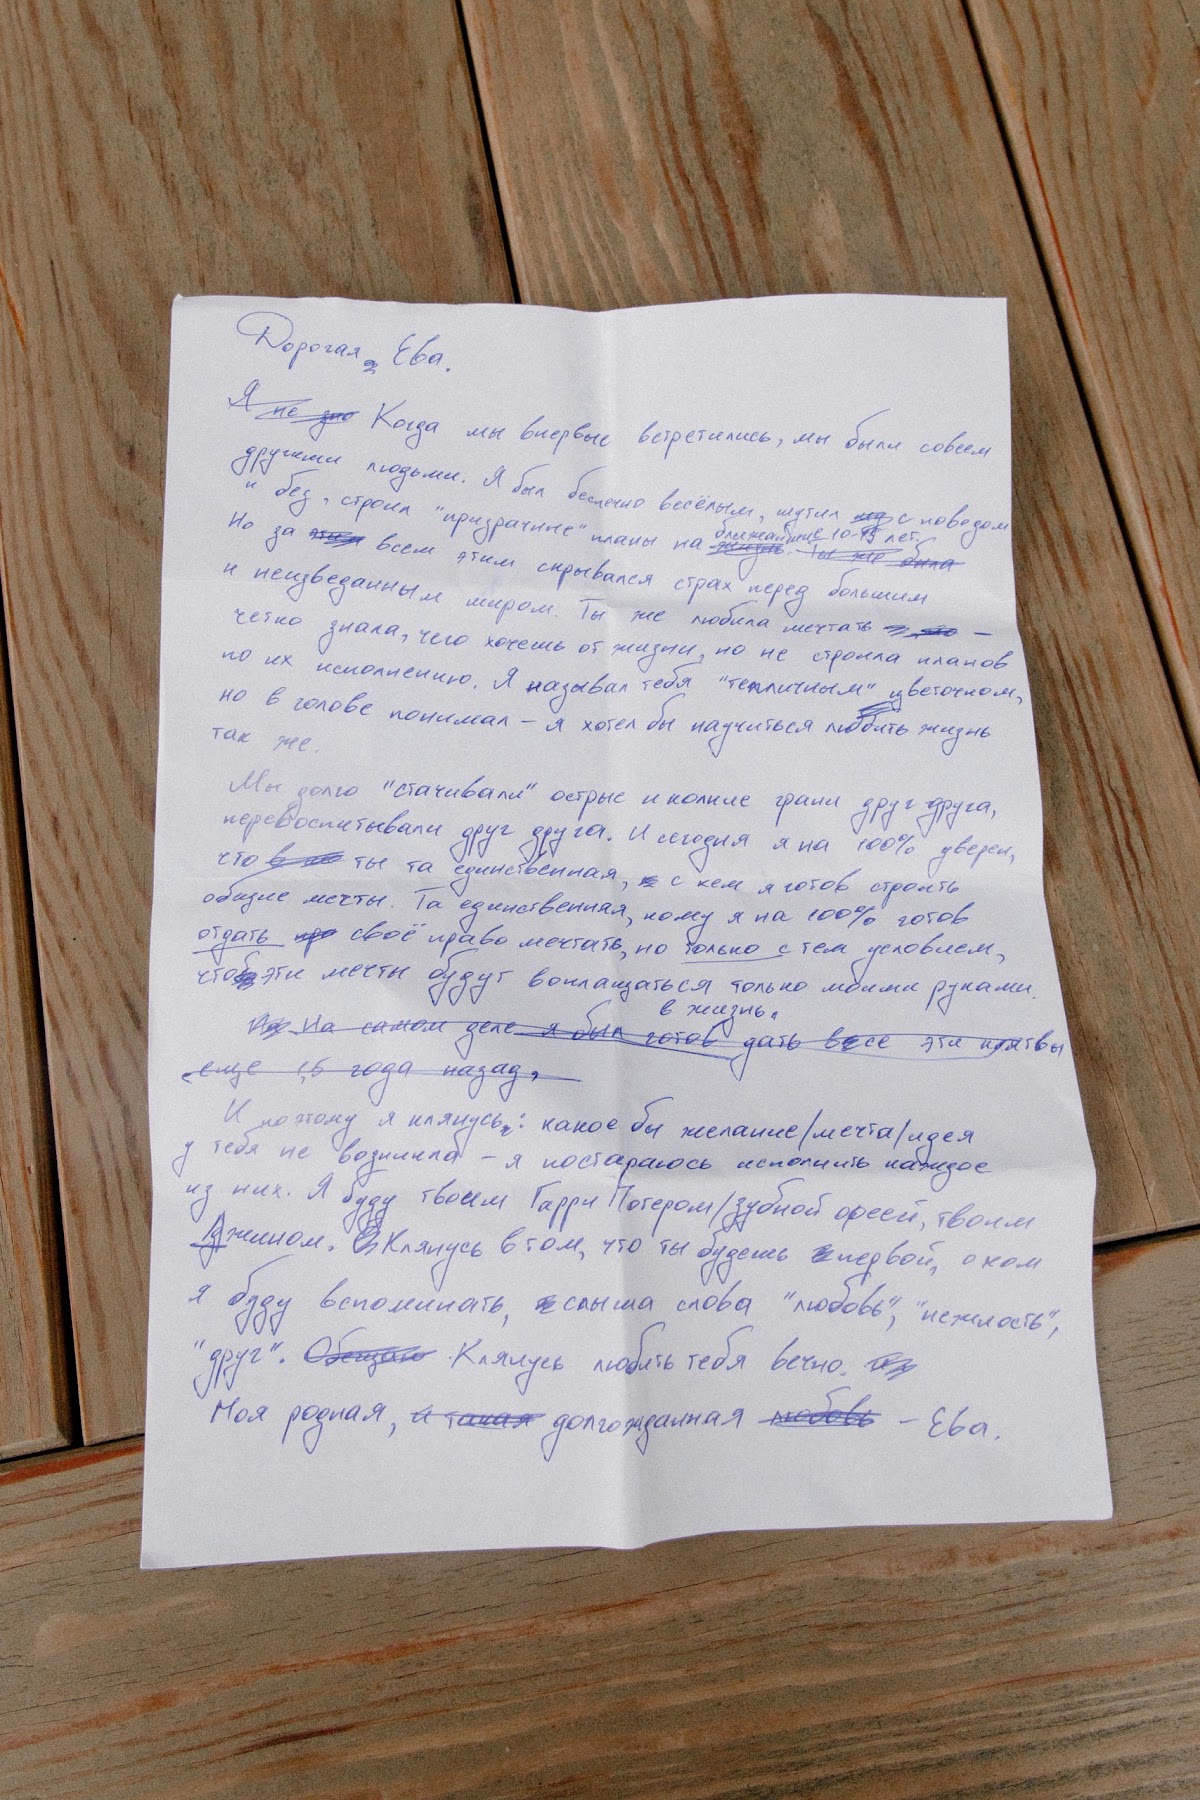 Дорогая, Ева.
Я не зна Когда мы впервые встретились, мы были совсем
другими людьми. Я был беспечно весёлым, шутил с поводом
и без, строил "призрачные" планы на жизнь. ближайшие 10-15 лет. Ты же была
Но за этим всем этим скрывался страх перед большим
и неизведанным миром. Ты же любила мечтать –
четко знала, чего хочешь от жизни, но не строила планов
по их исполнению. Я называл тебя "тепличным" цветочком,
но в голове понимал – я хотел бы научиться любить жизнь
так же.
Мы долго "стачивали" острые и колкие грани друг друга,
перевоспитывали друг друга. И сегодня я на 100% уверен,
что ты та единственная, с кем я готов строить
общие мечты. Та единственная, кому я на 100% готов
отдать своё право мечтать, но только с тем условием,
что эти мечты будут воплащаться только моими руками.
в жизнь.
На самом деле я был готов дать все эти клятвы
еще 1,5 года назад,
И поэтому я клянусь: какое бы желание/мечта/идея
у тебя не возникла – я постараюсь исполнить каждое
из них. Я буду твоим Гарри Потером/зубной феей, твоим
Джином. Клянусь в том, что ты будешь первой, о ком
я буду вспоминать, слыша слова "любовь", "нежность",
"друг". Обещаю Клянусь любить тебя вечно.
Моя родная, и такая долгожданная любовь – Ева.